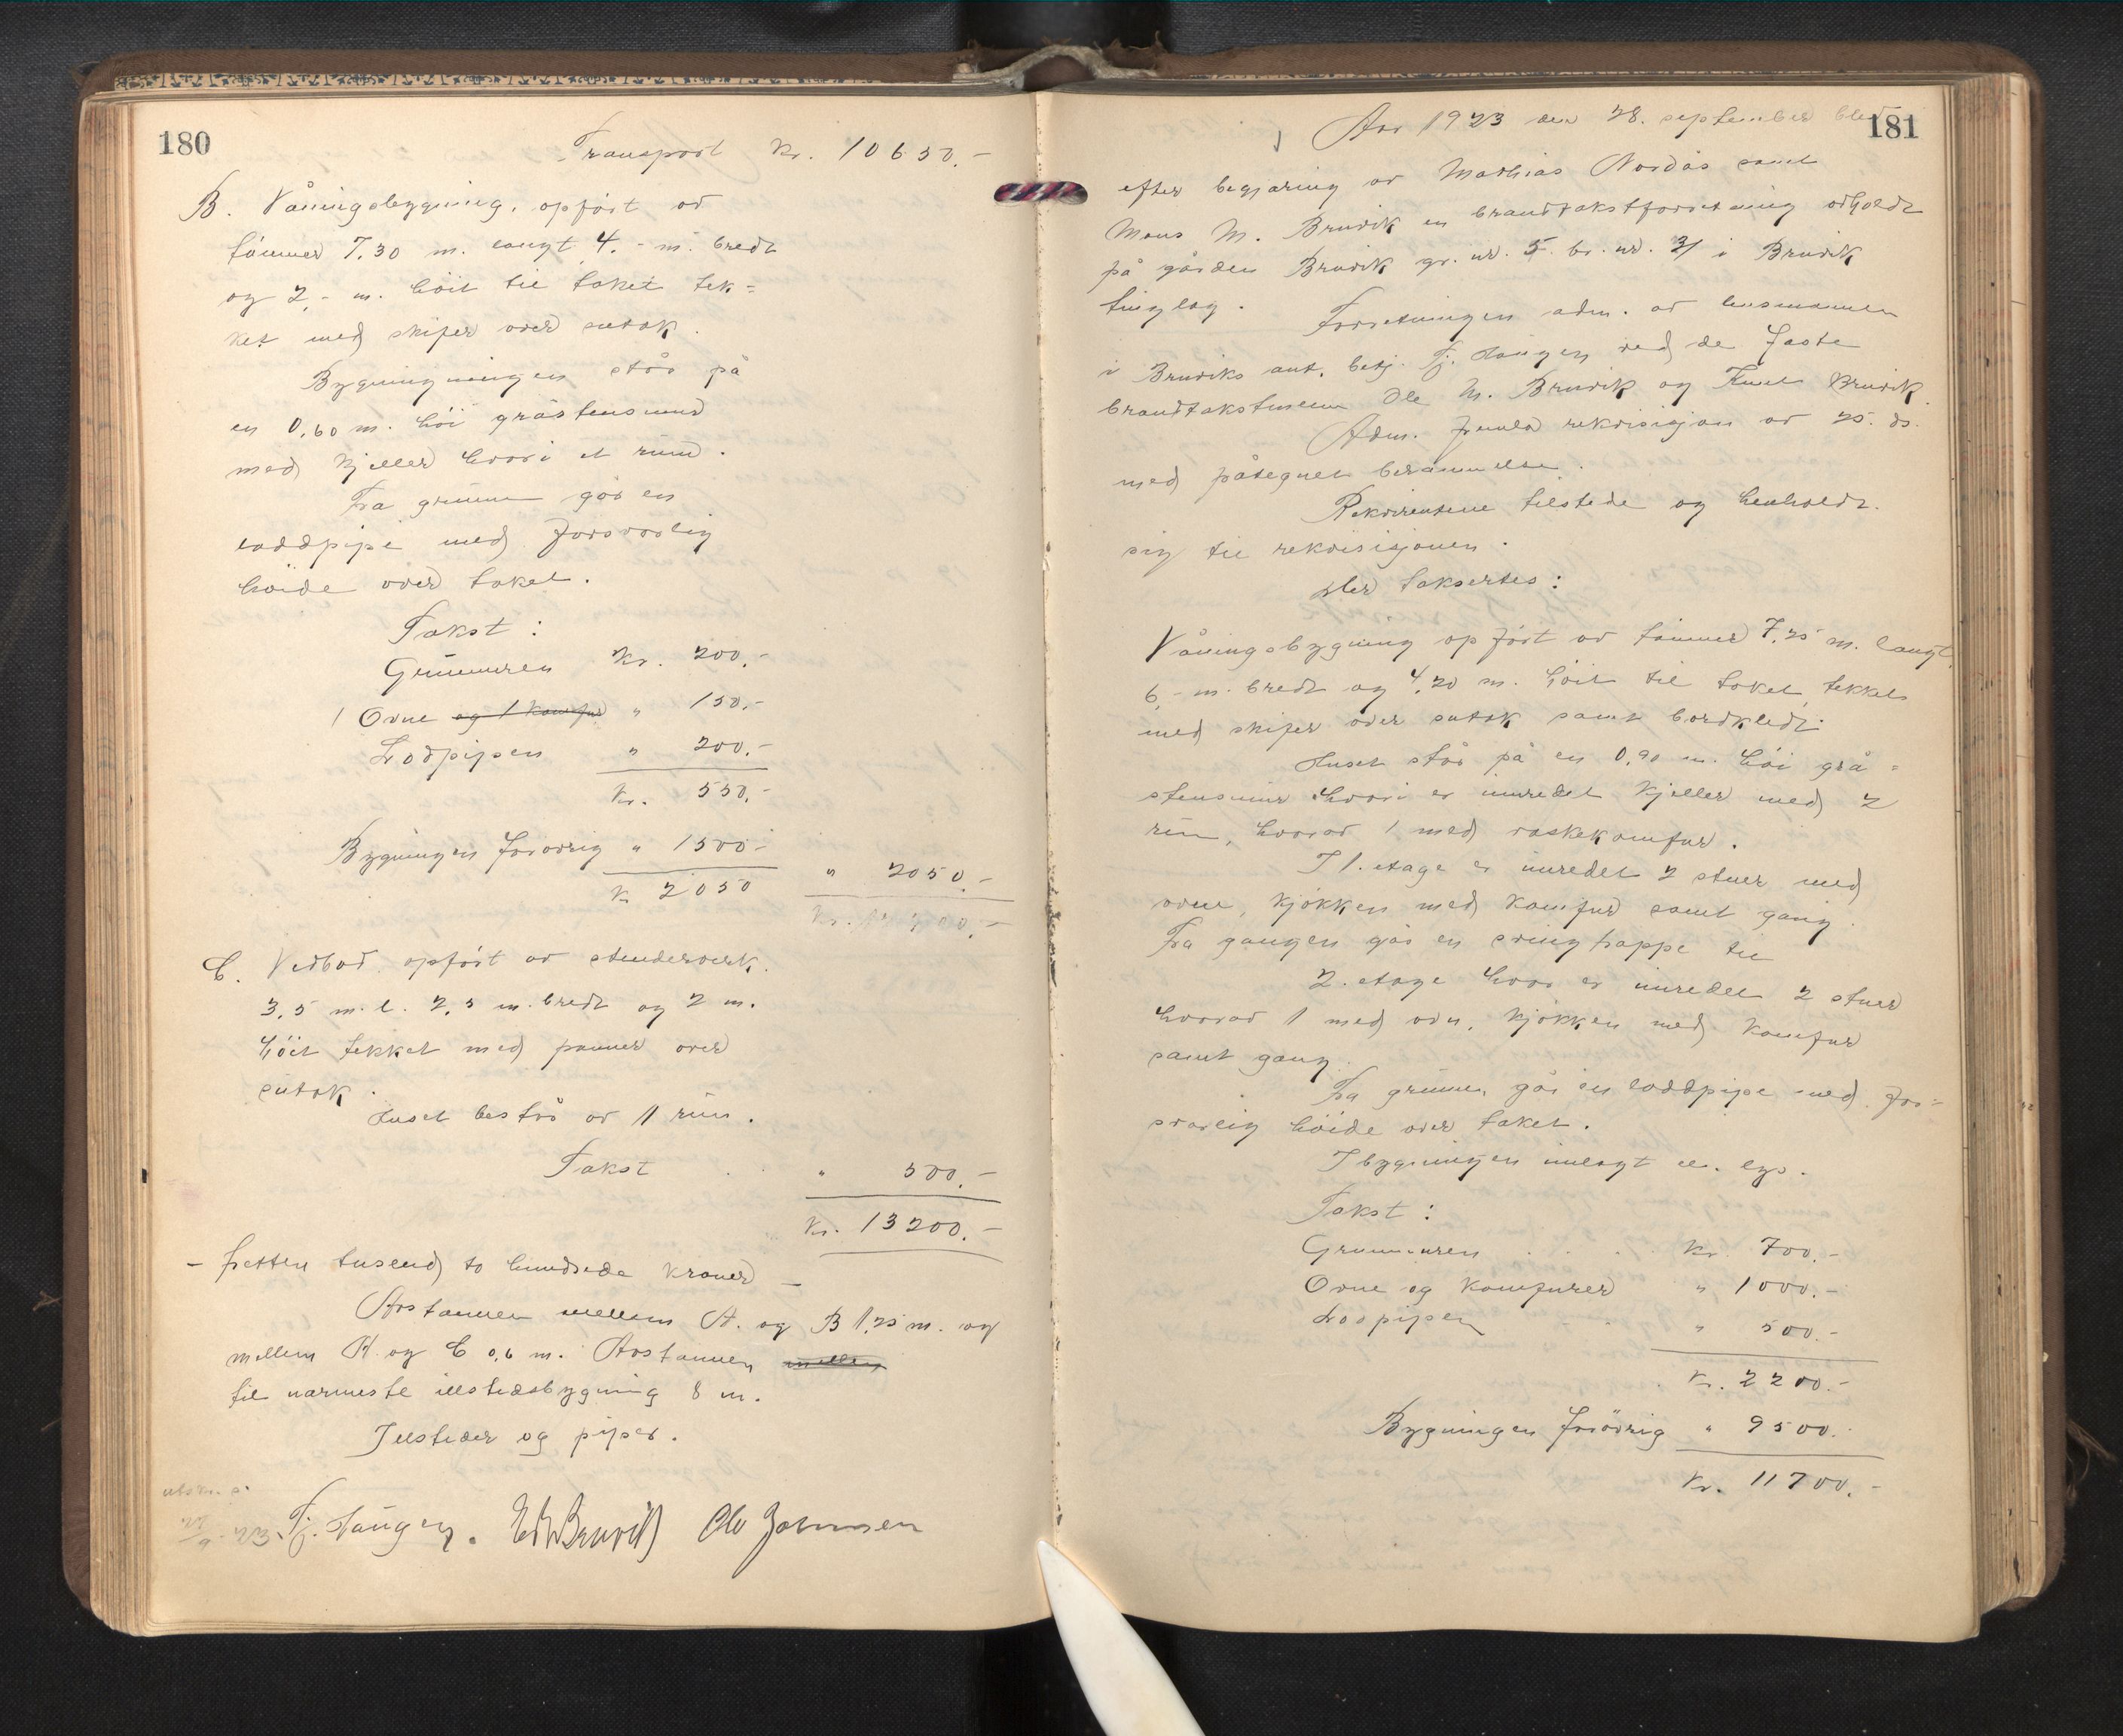 180
Transport Kr. 10650.-
B. Våningsbygning, opført av
tømmer 7.30 m. langt 4.- m. bredt
og 2,- m. höit til taket tek=
ket med skifer over sutak.
Bygningningen står på
en 0.60 m. höi gråstensmur
med kjeller hvori et rum.
Fra grunnen går en
loddpipe med forsvarlig
höide over taket.
Takst:
Grunmuren Kr. 200.-
1 Ovne og 1 komfur " 150.-
Lodpipen " 200.-
Kr. 550.-
Bygningen forövrig " 1500.-
Kr 2050 " 2050.-
C. Vedbod, opført av stenderverk.
3.5 m. l. 2,5 m. bredt og 2 m.
höit tekket med panner over
sutak.
Huset består av 1 rum.
Takst " 500.-
Kr. 13200.-
- tretten tusend to hundrede kroner -
Avstannen mellem A. og B 1,25 m. og
mellem A og C 0,6 m. Avstannen mellem
til nærmeste illstedsbygning 8 m.
Illsteder og piper.
utskr. s.
Fj. Haugen. Ole Johnsen
181
Aar 1923 den 28. september blev
efter begjæring av Mathias Nordås samt
Mons M. Bruvik en brandtakstforretning avholdt
på gården Bruvik gr. nr. 5. br. nr. 31 i Bruvik
tinglag. Forretningen adm. av lensmannen
i Bruviks aut. betj. Fj. Haugen ved de faste
brandtakstmenn Ole M. Bruvik og Knut Bruvik.
Adm. fremla rekvisisjon av 25. ds.
med påtegnet berammelse.
Rekvirentene tilstede og henholdt
sig til rekvisisjonen.
Der taksertes:
Våningsbygning opført av tømmer 7,25 m. langt
6,- m. bredt og 4,20 m. höit til taket, tekket
med skifer over sutak samt bordkledt.
Huset står på en 0,90 m. höi grå=
stensmur hvori er innredet kjeller med 2
rum, hvorav 1 med vaskekomfur.
I 1. etage er innredet 2 stuer med
ovne, kjøkken med komfur samt gang.
Fra gangen går en svingtrappe til
2. etage hvor er innredet 2 stuer
hvorav 1 med ovn, kjøkken med komfur
samt gang.
Fra grunnen går en loddpipe med for=
svarlig höide over taket.
I bygningen innlagt el. lys.
Takst:
Grunmuren Kr. 700.-
Ovne og komfurer " 1000.-
Lodpipen " 500.-
Kr. 2200.-
Bygningen forövrig " 9500.-
Kr. 11700.-